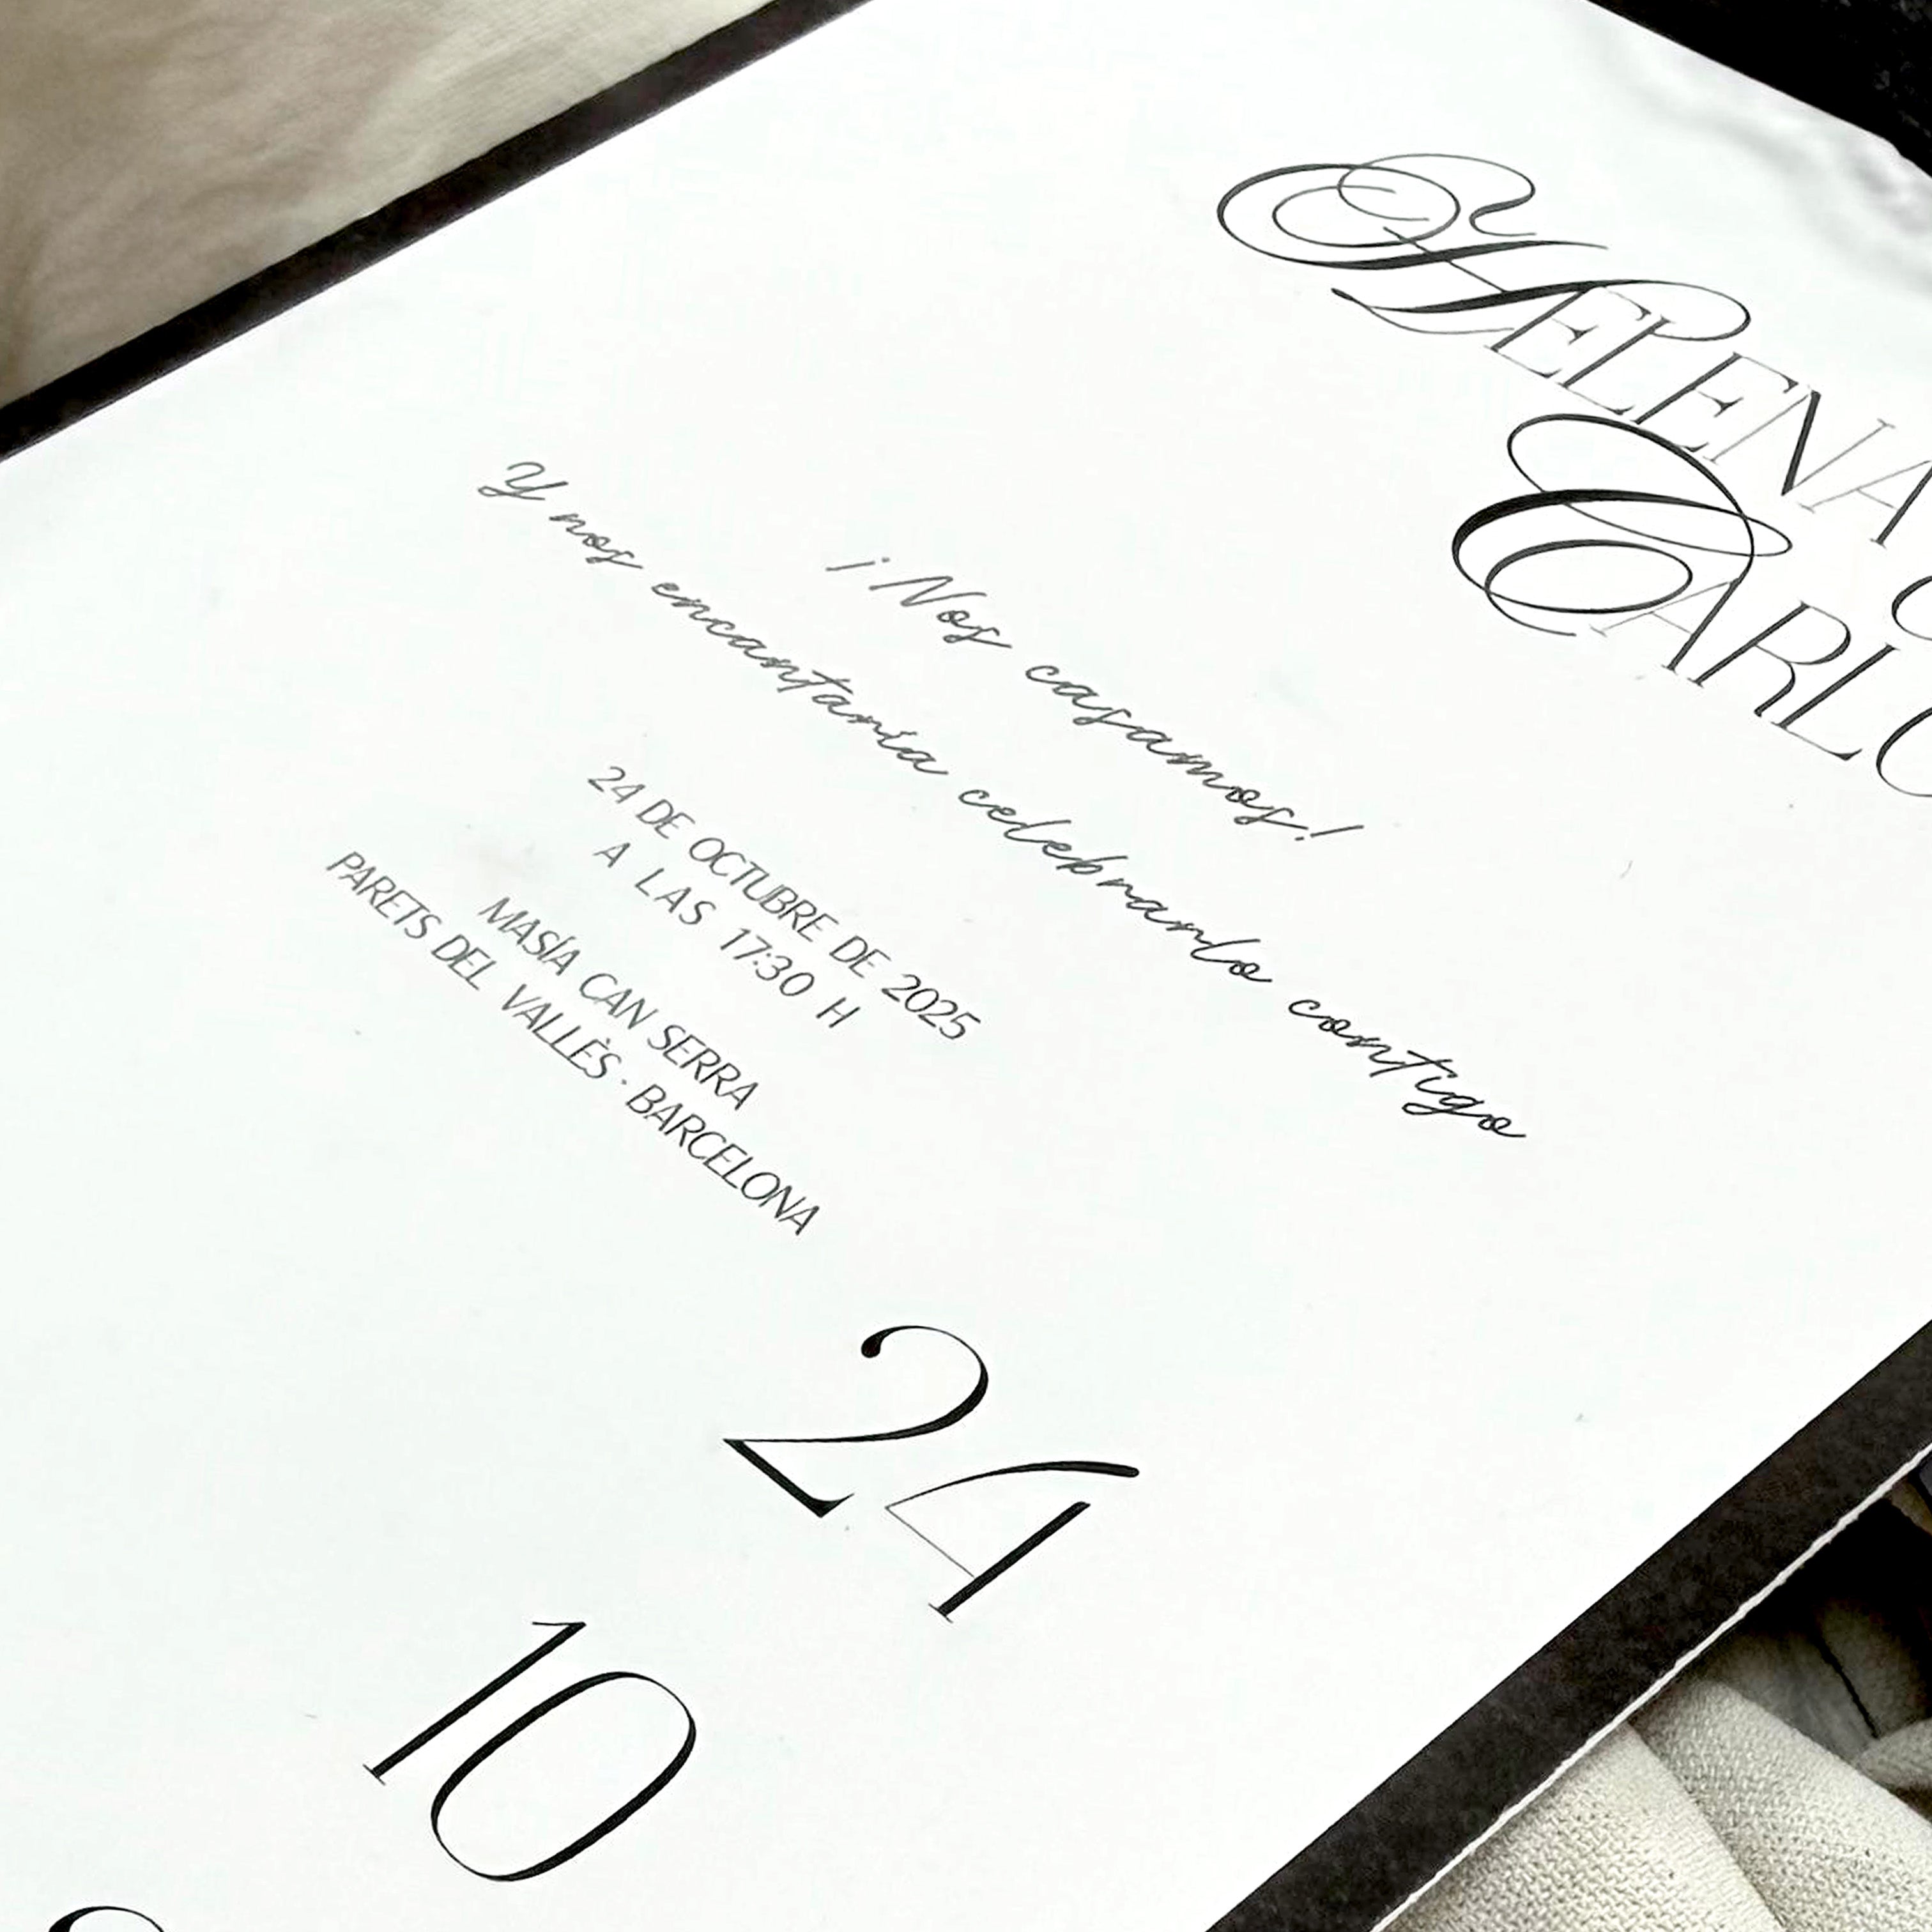 HELENA
CARLO
¡Nos casamos!
Y nos encantaría celebrarlo contigo
24 DE OCTUBRE DE 2025
A LAS 17:30 H
MASÍA CAN SERRA
PARETS DEL VALLÈS · BARCELONA
24
10